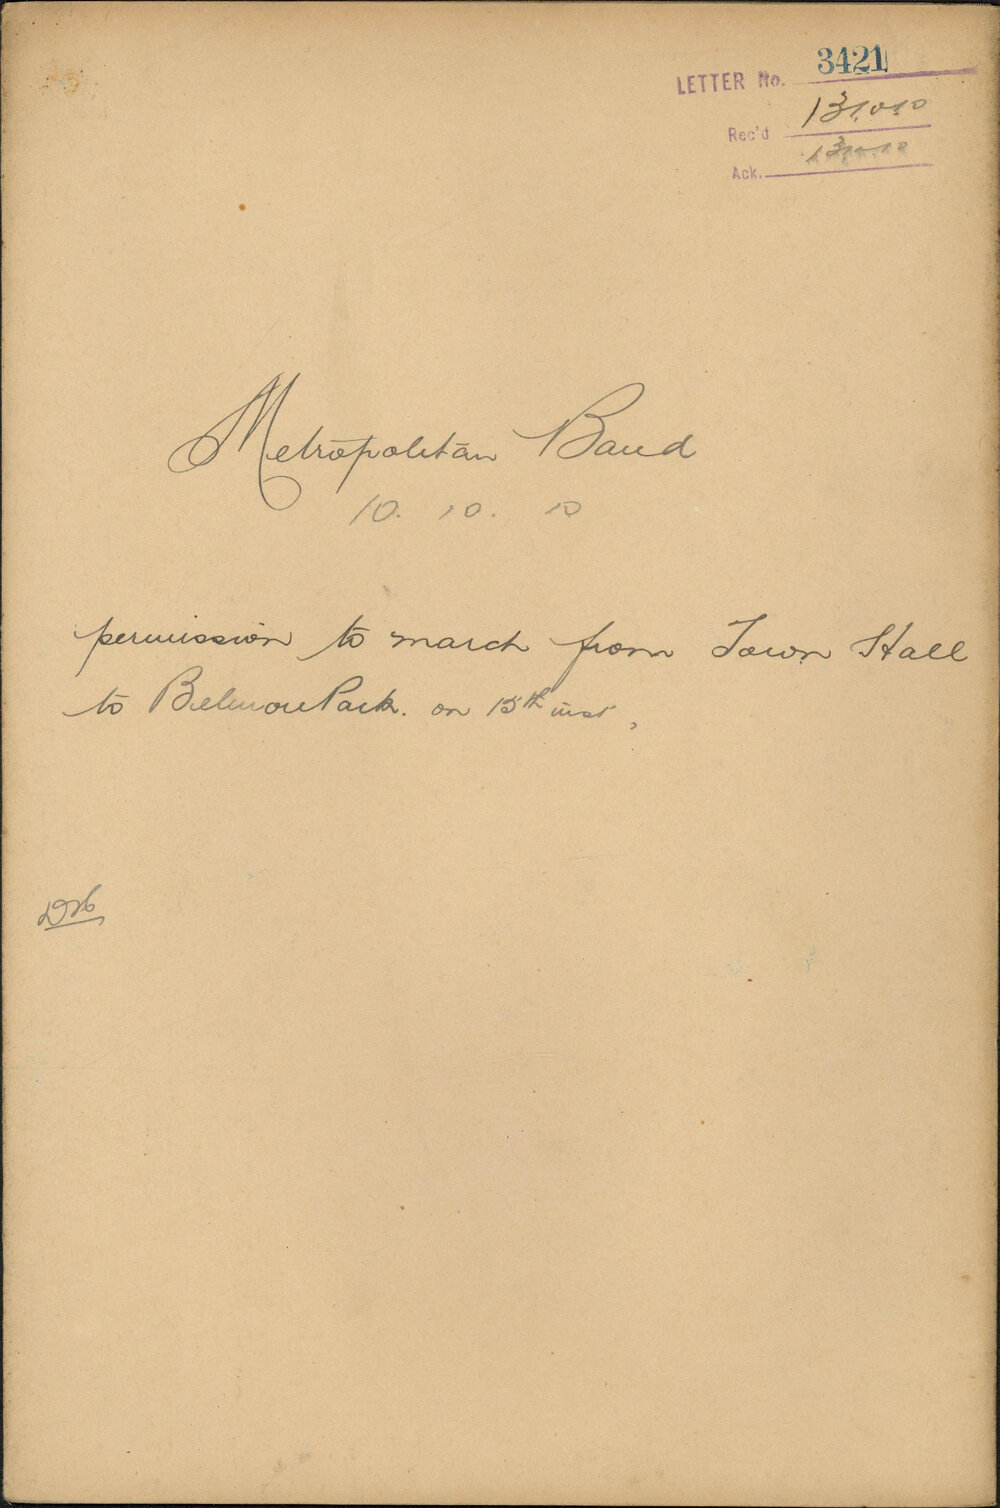 LETTER No. 3421
Rec'd 13.10.10
Ack. 13.10.10
Metropolitan Band
10. 10. 10
permission to march from Town Hall
to Belmore Park. on 15th inst,